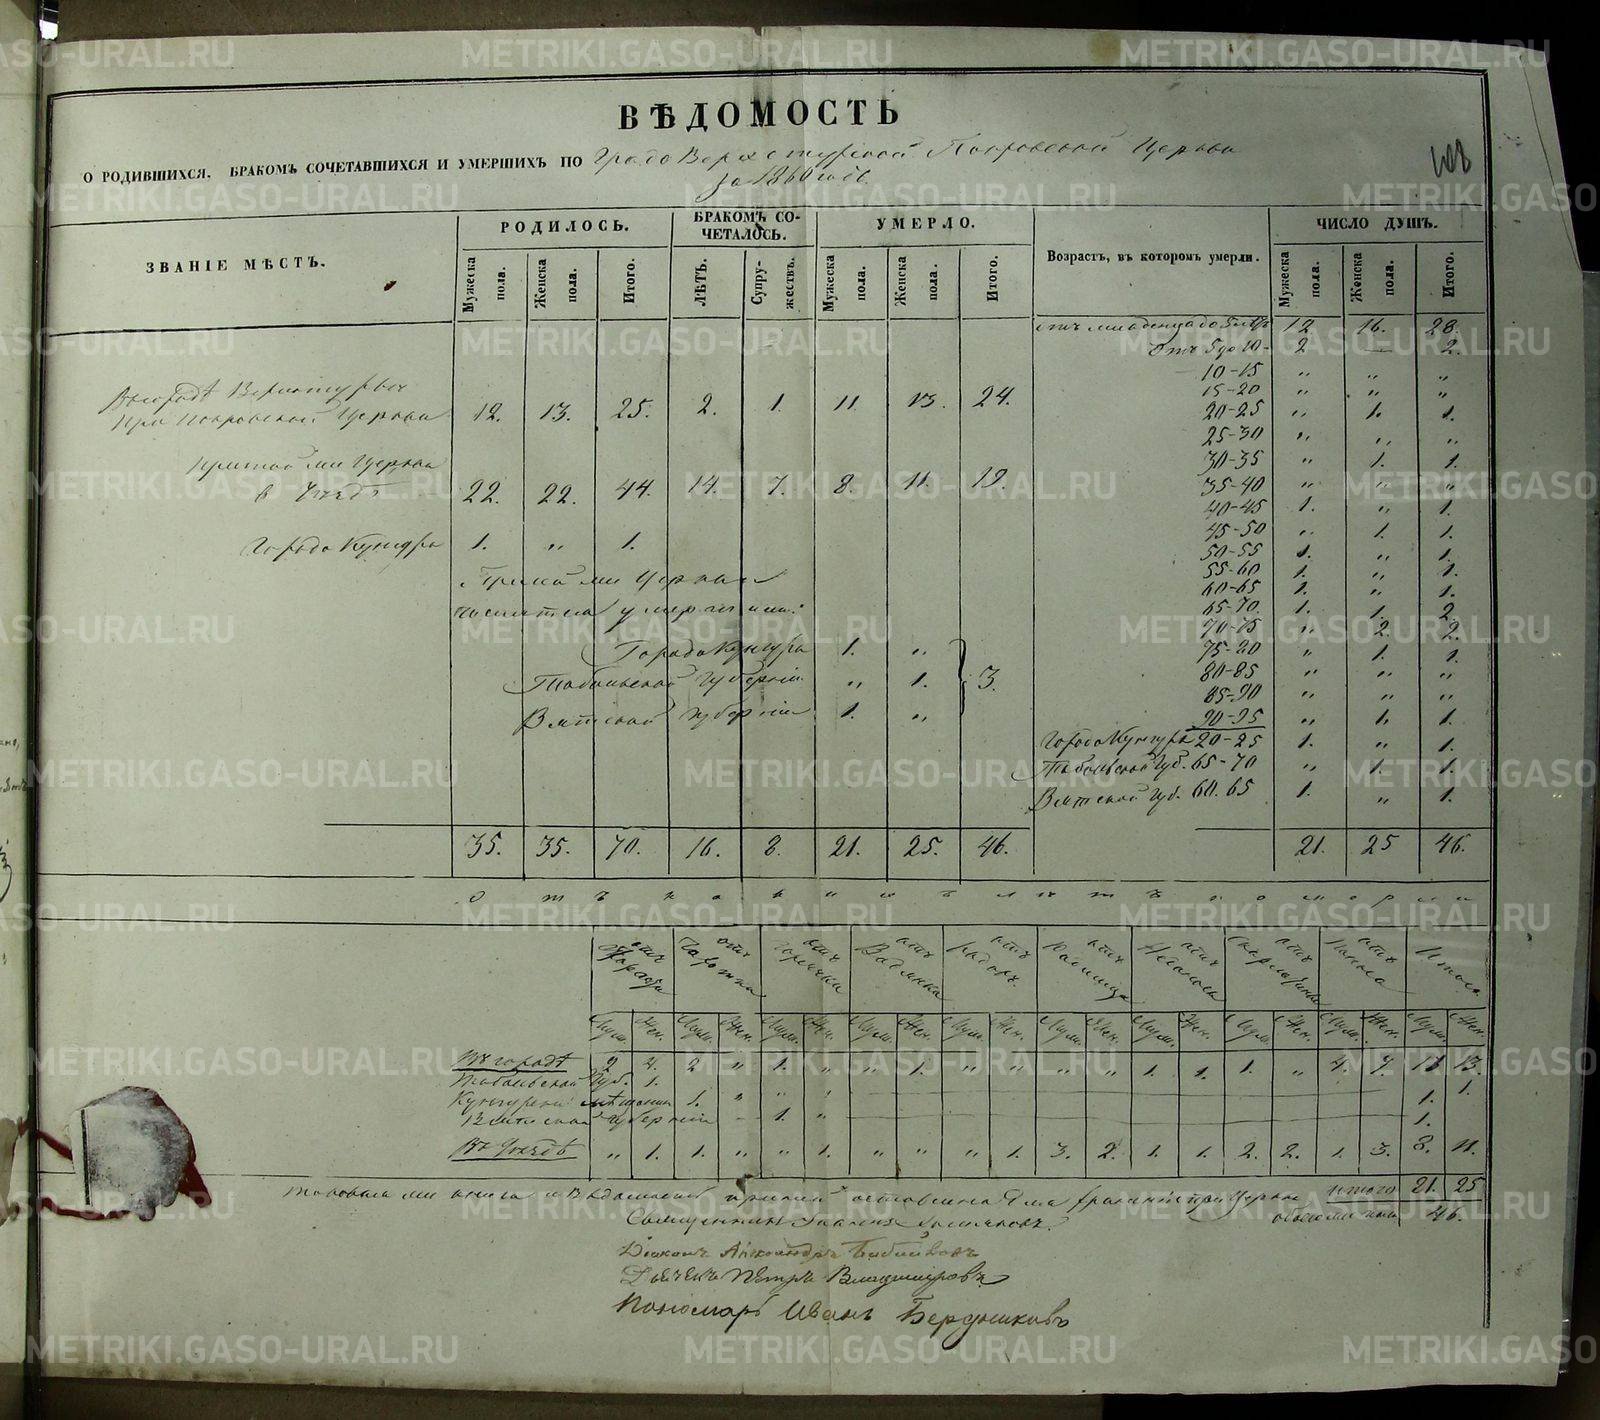 ВѢДОМОСТЬ
О РОДИВШИХСЯ, БРАКОМЪ СОЧЕТАВШИХСЯ И УМЕРШИХЪ ПО Градо Верхотурской Покровской Церкви
за 1860 годъ.
ЗВАНІЕ МѢСТЪ. РОДИЛОСЬ. БРАКОМЪ СОЧЕТАЛОСЬ. УМЕРЛО. Возрастъ, въ которомъ умерли. ЧИСЛО ДУШЪ.
Мужеска пола. Женска пола. Итого. ЛѢТЪ. Супружествъ. Мужеска пола. Женска пола. Итого. Мужеска пола. Женска пола. Итого.
отъ младенца до 5 лѣтъ 12 16. 28.
отъ 5 до 10 - 2 — 2.
10-15 " " "
15-20 " " "
Въ городѣ Верхотурьѣ
при Покровской Церкви 12. 13. 25. 2. 1. 11. 13. 24.
20-25 " 1. 1.
25-30 " " "
30-35 " 1. 1.
при той же Церкви
в Уѣздѣ 22. 22. 44. 14. 7. 8. 11. 19.
35-40 " " "
40-45 1. " 1.
45-50 " 1. 1.
Города Кунгура 1. " 1.
50-55 1. " 1.
55-60 1. " 1.
60-65 1. " 1.
При той же Церкви
65-70. 1. 1. 2.
70-75 " 2. 2.
Города Кунгура 1. "
75-80 " 1. 1.
80-85 " " "
Тобольской Губерніи " 1. 3.
85-90 " " "
Вятской Губерніи 1. "
90-95 " 1. 1.
Города Кунгура 20-25 1. " 1.
Тобольской Губ. 65-70 " 1. 1.
Вятской Губ. 60.65 1. " 1.
35. 35. 70. 16. 8. 21. 25. 46. 21. 25 46.
отъ какихъ болѣзней померли
отъ отъ Горячки отъ Водянки отъ отъ отъ отъ отъ Итого.
Муж. Жен. Муж. Жен. Муж. Жен. Муж. Жен. Муж. Жен. Муж. Жен. Муж. Жен. Муж. Жен. Муж. Жен. Муж. Жен.
Въ городѣ 2 4. 2 " 1. " " 1. " " " " 1. 1. 1. " 4. 7. 11 13.
Тобольской Губ. 1. 1.
Кунгурскій мѣщанинъ 1. " " " 1.
Вятской Губерніи 1. " 1.
Въ Уѣздѣ " 1. 1. " " 1. " " " 1. 3. 2. 1. 1. 2. 2. 1. 3. 8. 11.
при Церкви итого 21. 25
Священникъ обоего пола 46.
Діаконъ Александръ
Дьячекъ Петръ Владиміровъ
Пономарь Иванъ Бердниковъ
METRIKI.GASO-URAL.RU